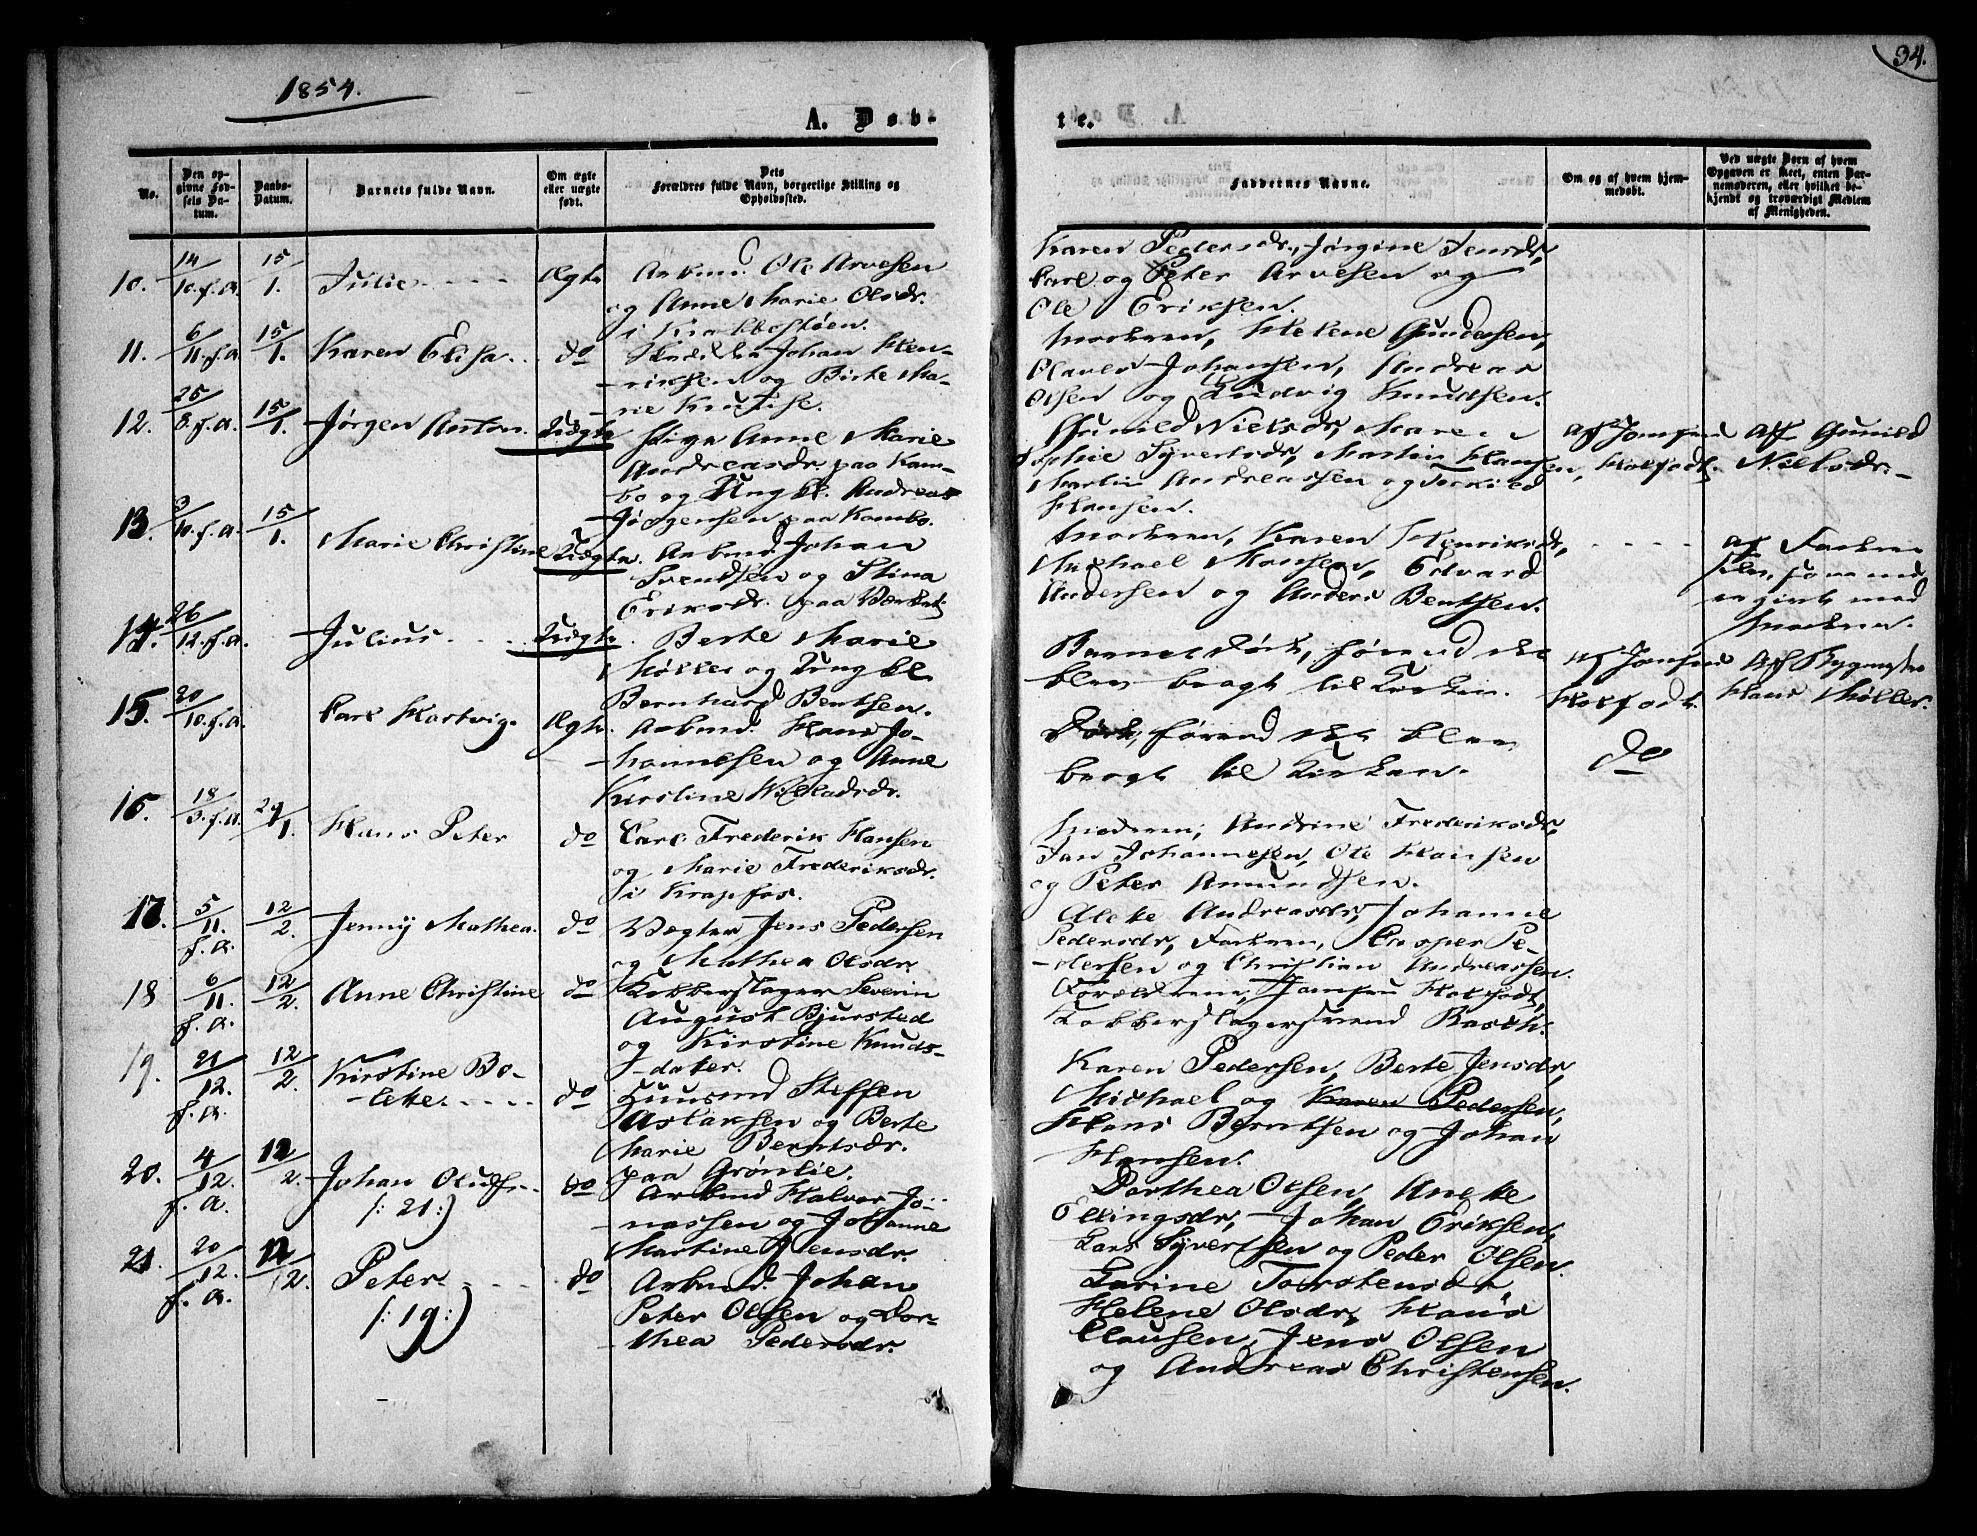 1854.
34.
A. Døb-
te.
No.
Den op-
givne Fød-
sels Da-
tum.
Daabs-
Datum.
Barnets fulde Navn.
Om ægte
eller uægte
født.
Dets
Forældres fulde Navn, borgerlige Stilling og
Opholdssted.
Faddernes Navne.
Om og af hvem hjem-
medøbt.
Ved uægte Born af hvem
Opgaven er skeet, enten Bar-
nemoderen, eller hvilket be-
kjendt og troværdigt Medlem
af Menigheden.
10. 14/10. f.A. 15/1. Julie Ægte Arbmd. Ole Arvesen
og Anne Marie Olsdr.
i Krabbestøen.
Karen Pedersdr., Jørgine Jensdr,
Carl og Peter Arvesen og
Ole Eriksen.
11. 6/11. f.A. 15/1. Karen Elisa do Johan Hen-
riksen og Birte Ma-
rie
Moderen, Helene Gundersen,
Olaves Johansen, Andreas
Olsen og Ludvig Knudsen.
12. 25/8. f.A. 15/1. Jørgen Anton. Uægte Piga Anne Marie
Andreasdr. paa Kam-
bo og Ungkl. Andreas
Jørgensen paa Kambo.
Gunild Nielsdr, Maren
Sophie Syvertsdr, Martin Hansen,
Martin Andreassen og Torkild
Hansen.
Af Jomfru
Holfodt.
Af Gunild
Nielsdr.
13. 3/10. f.A. 15/1. Marie Christine Uægte. Arbmd. Johan
Svendsen og Stina
Eriksdr. paa Værket
Moderen, Karen Henriksdr,
Michael Monsen, Edvard
Andersen og Anders Bentsen.
af Faderen
som nu
er givt med
Moderen.
14. 26/12. f.A. Julius Uægte Berte Marie
Møller og Ungkl
Bernhard Bentsen.
Barnet Død, førend det
blev bragt til Kirken.
Af Jomfru
Holfodt.
Af Bygmester
Hans Møller.
15. 20/10. f.A. Carl Hartvig. Ægte. Arbmd. Hans Jo-
hannesen og Anne
Kirstine Villadsdr.
Død, førend det blev
bragt til Kirken.
do
16. 18/3. f.A. 29/1. Hans Peter do Carl Frederik Hansen
og Marie Frederiksdr.
i Krapfos.
Moderen, Andrine Frederiksdr,
Jan Johannesen, Ole Hansen
og Peter Amundsen.
17. 5/11. f.A. 12/2. Jenny Mathea. do Vægter Jens Pedersen
og Mathea Olsdr.
Aleke Andreasdr, Johanne
Pedersdr, Faderen, Casper Pe-
dersen og Christian Andreassen.
18 6/11. f.A. 12/2. Anne Christine do Kobberslager Severin
August Bjursted
og Kirstine Knuds-
dater.
Forældrene, Jomfru Holfodt,
Kobberslagersvend Rasch.
19. 21/12. f.A. 12/2. Kirstine Bo-
lette. do Huusmd Steffen
Aslaksen og Berte
Marie Berntsdr.
paa Grønlie.
Karen Pedersen, Berte Jensdr,
Michael og Karen Pedersen,
Hans Berntsen og Johan
Hansen.
20. 4/12. f.A. 12/2. Johan Oluf
/: 21:/ do Arbmd Halvor Jo-
nassen og Johanne
Martine Jensdr.
Dorthea Olsen, Aneke
Ellingsdr, Johan Eriksen,
Lars Syvertsen og Peder Olsen.
21. 20/12. f.A. 12/2. Peter.
/: 19:/ do Arbmd. Johan
Peter Olsen og Dor-
thea Pedersdr.
Karine Torstensdr
Helene Olsdr, Hans
Clausen, Jens Olsen
og Andreas Christensen.